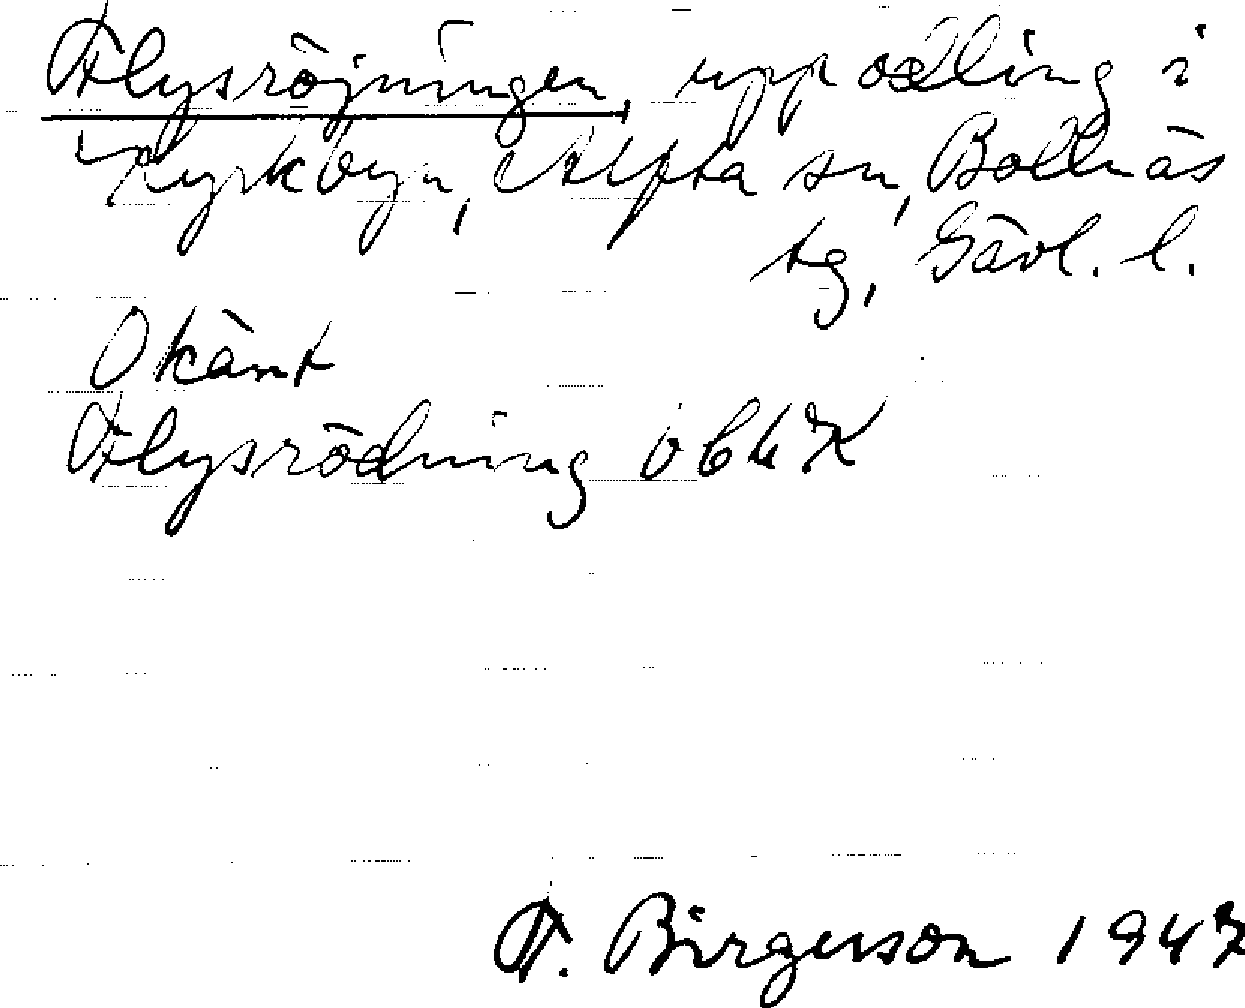 Flysröjningen, uppodling i
Kyrkbyn, Alfta sn, Bollnäs
tg, Gävl. l.
Okänt
Flysrödning öbhK
F. Birgerson 1947